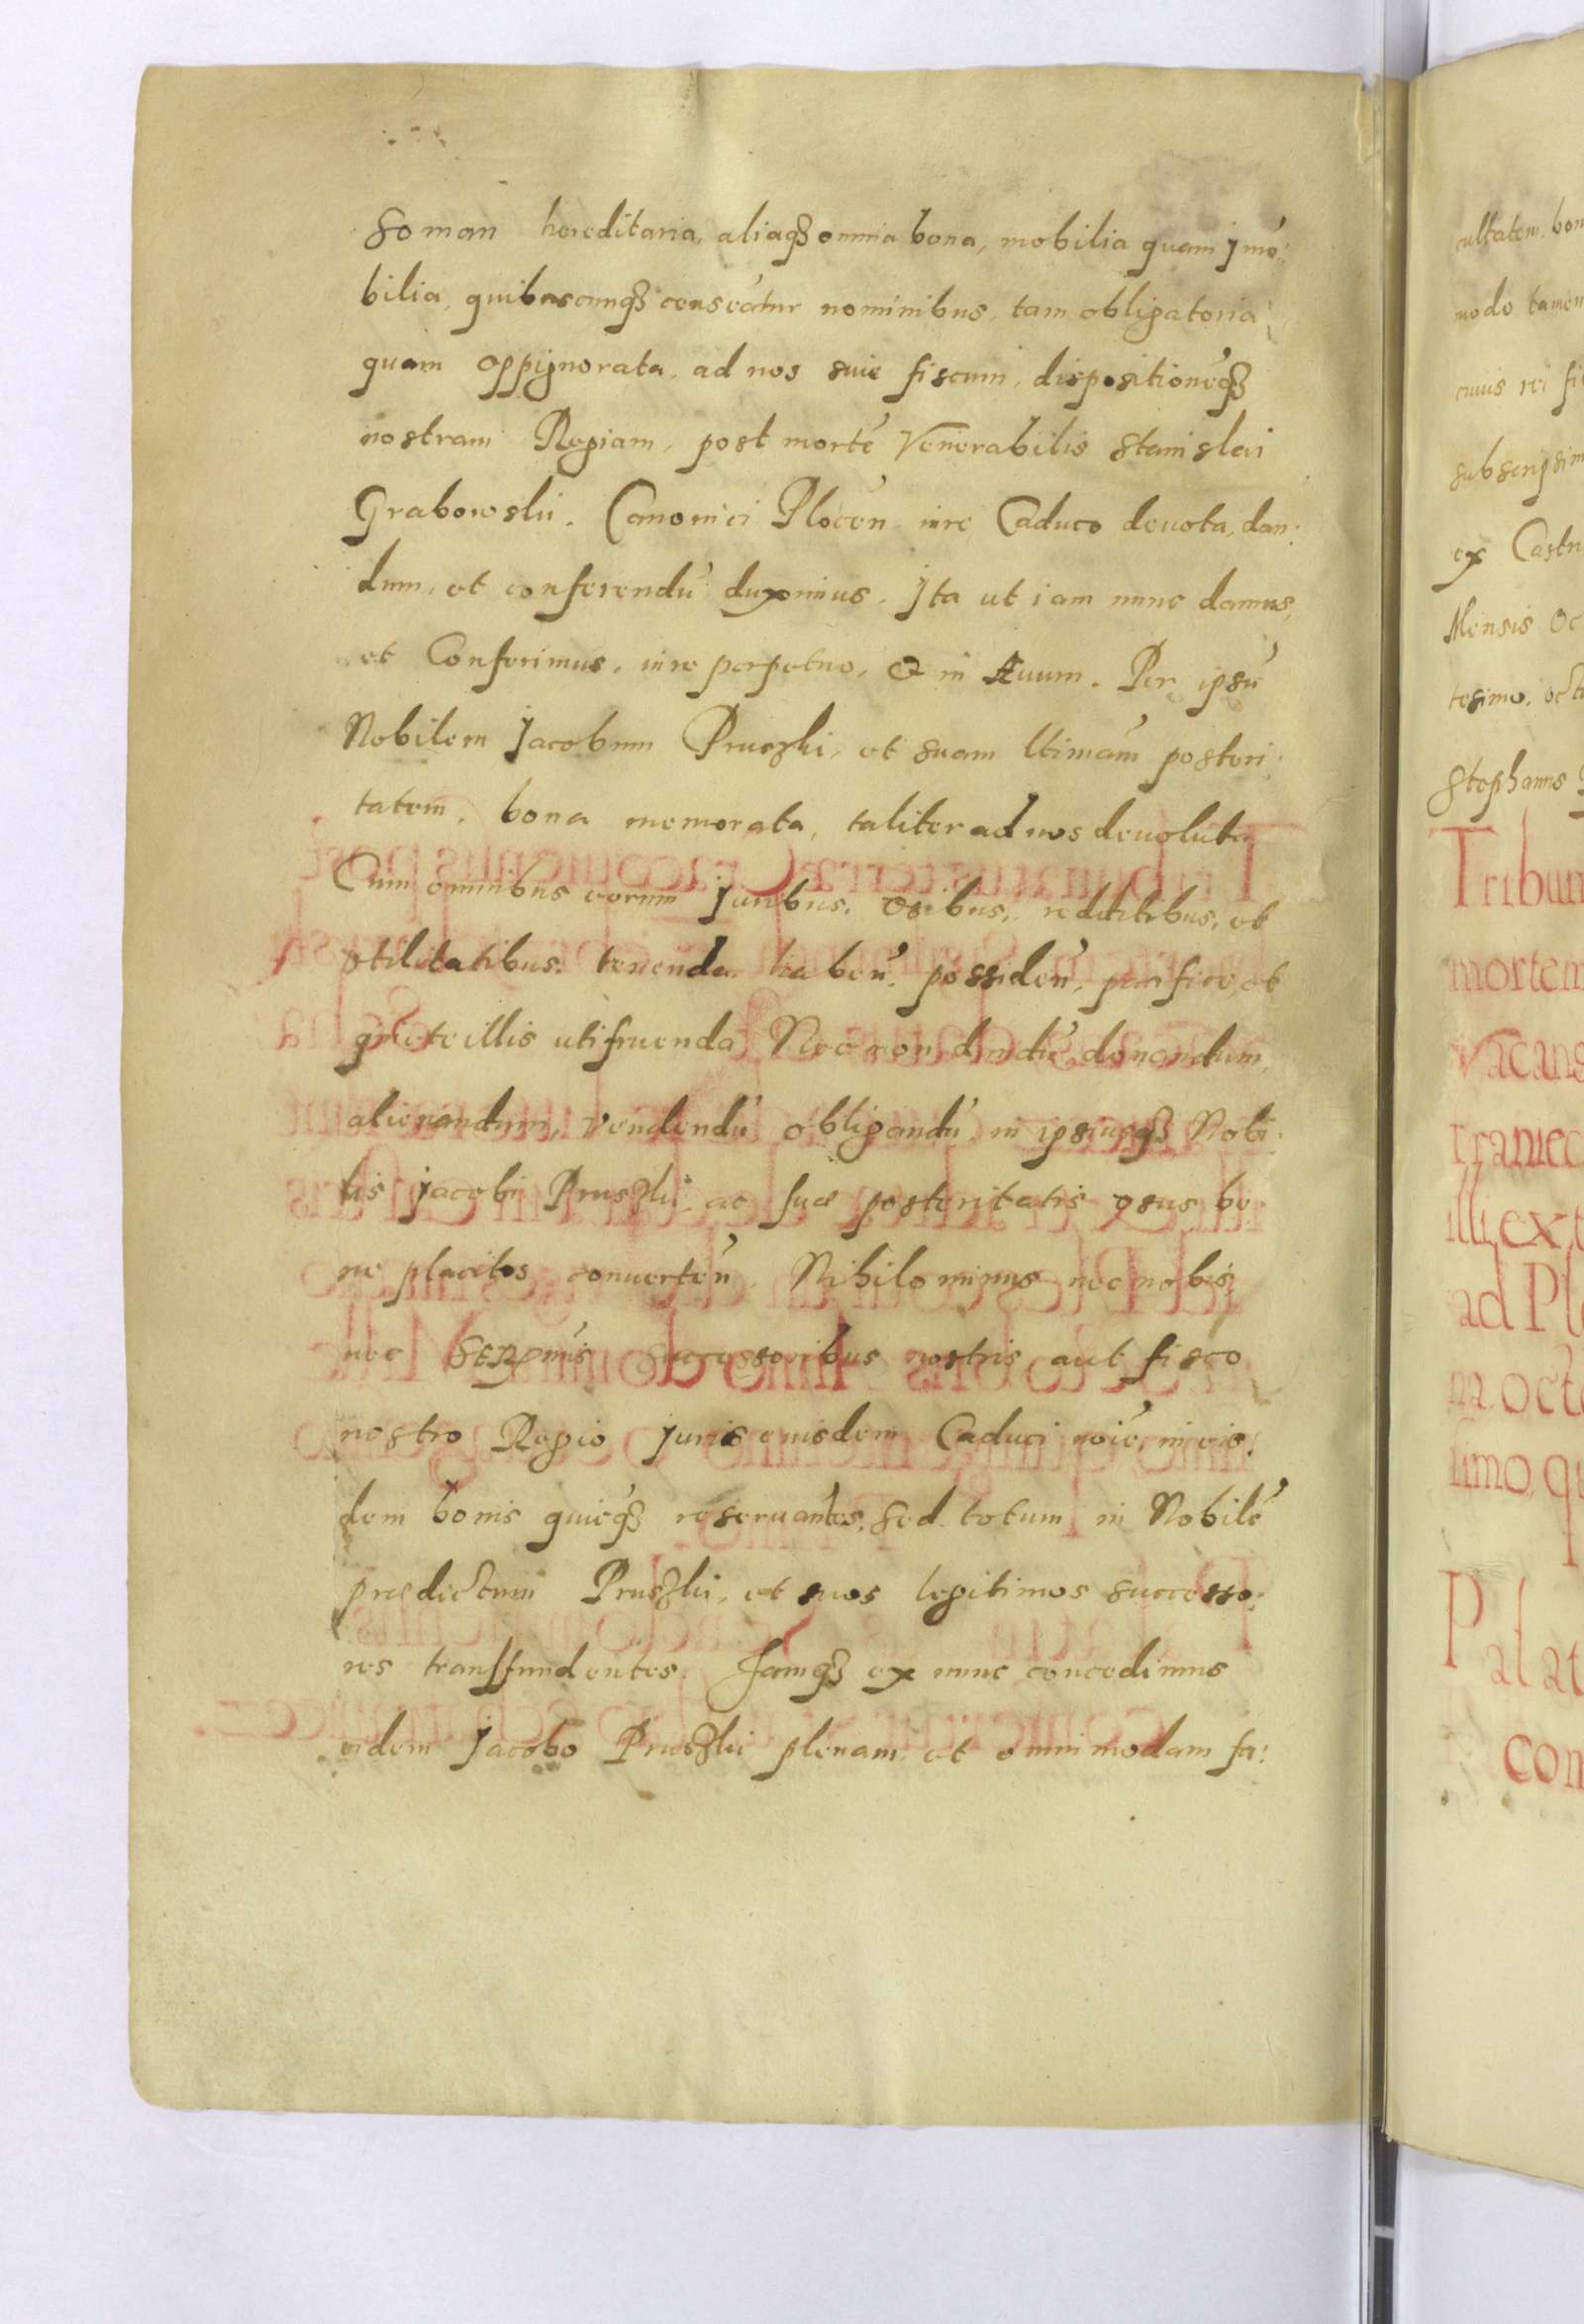 soman hereditaria, aliaq₃ omnia bona, mobilia quam jmō:
bilia, quibuscunq₃ censeātur nominibus, tam obligatoria
quam oppignorata, ad nos suie fiscum, dispositioneq₃
nostram Regiam, post mortē Venerabilis Stanislai
Grabowskii. Canonici Plocēn iure Caduco deuota, dan:
dum, et conferendū duximus. Jta ut iam nunc damus,
et Conferimus, iure perpetuo, & in Æuum. Per ipsū
Nobilem Jacobum Pruszki, et suam ltimām posteri:
tatem, bona memorata, taliter ad nos deuoluta
Cum omnibus eorum Juribus, vsibus, redditibus, et
vtilitatibus. tenenda habeñ. possideñ, pacifice, et
quiete illis utifruenda Nec non dandū donandum,
alienandum, vendendū obligandū, in ipsiusq₃ Nobi:
lis Jacobi Pruszkii ac suæ posteritatis vsus be
ne placitos conuerteñ. Nihilominus nec nobis,
nec SERmis successoribus nostris aut fisco
nostro Regio Juris eiusdem Caduci noiē, in eis:
dem bonis quicq₃ reseruantes, sed totum in Nobilē
predictum Pruszki, et suos legitimos successo:
res transfundentes. Jamq₃ ex nunc concedimus
eidem Jacobo Pruszki plenam et omnimodam fa:
cultatem, bon
modo tamen
cuius rei fi
subscripsim
ex Castr
Mensis Oc
tesimo, oct
Stephanus
Tribun
mortem
vacans
Franic
illi, ex
ad Pl
na. octo
simo, qu
Palat
com